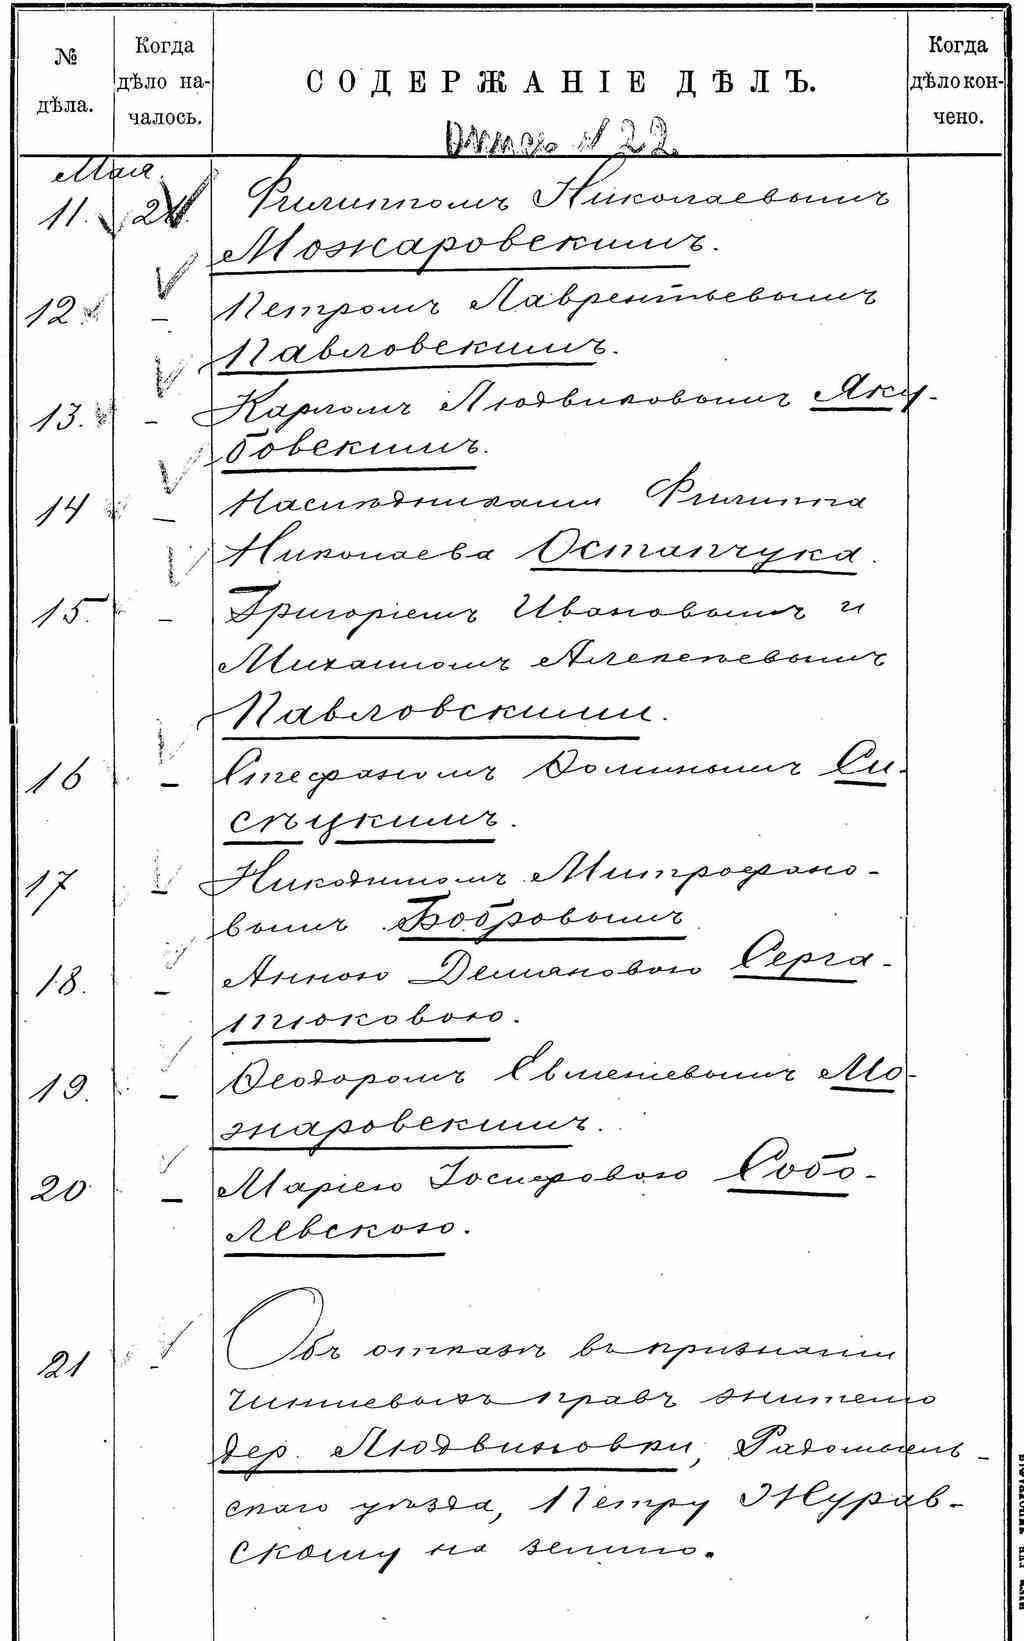 № дѣла.
Когда дѣло на-
чалось.
СОДЕРЖАНІЕ ДѢЛЪ.
Когда дѣло кон-
чено.
Опись № 22
Мая
11. 21. Филиппомъ Николаевымъ
Можаровскимъ.
12. – Петромъ Лаврентьевымъ
Павловскимъ.
13. – Карломъ Людвиковымъ Яку-
бовскимъ.
14 – Наслѣдниками Филиппа
Николаева Остапчука.
15. – Григоріемъ Ивановымъ и
Михаиломъ Алексѣевымъ
Павловскими.
16 – Стефаномъ Фоминымъ Си-
сѣцкимъ.
17 – Никодимомъ Митрофано-
вымъ Бобровымъ
18. – Анною Демяновою Серга-
тюковою.
19. – Ѳеодоромъ Евменіевымъ Мо-
жаровскимъ.
20 – Маріею Іосифовою Собо-
левскою.
21 – Объ отказѣ въ признаніи
чиншевыхъ правъ жителю
дер. Людвиновки, Радомысль-
скаго уѣзда, Петру Журав-
скому на землю.